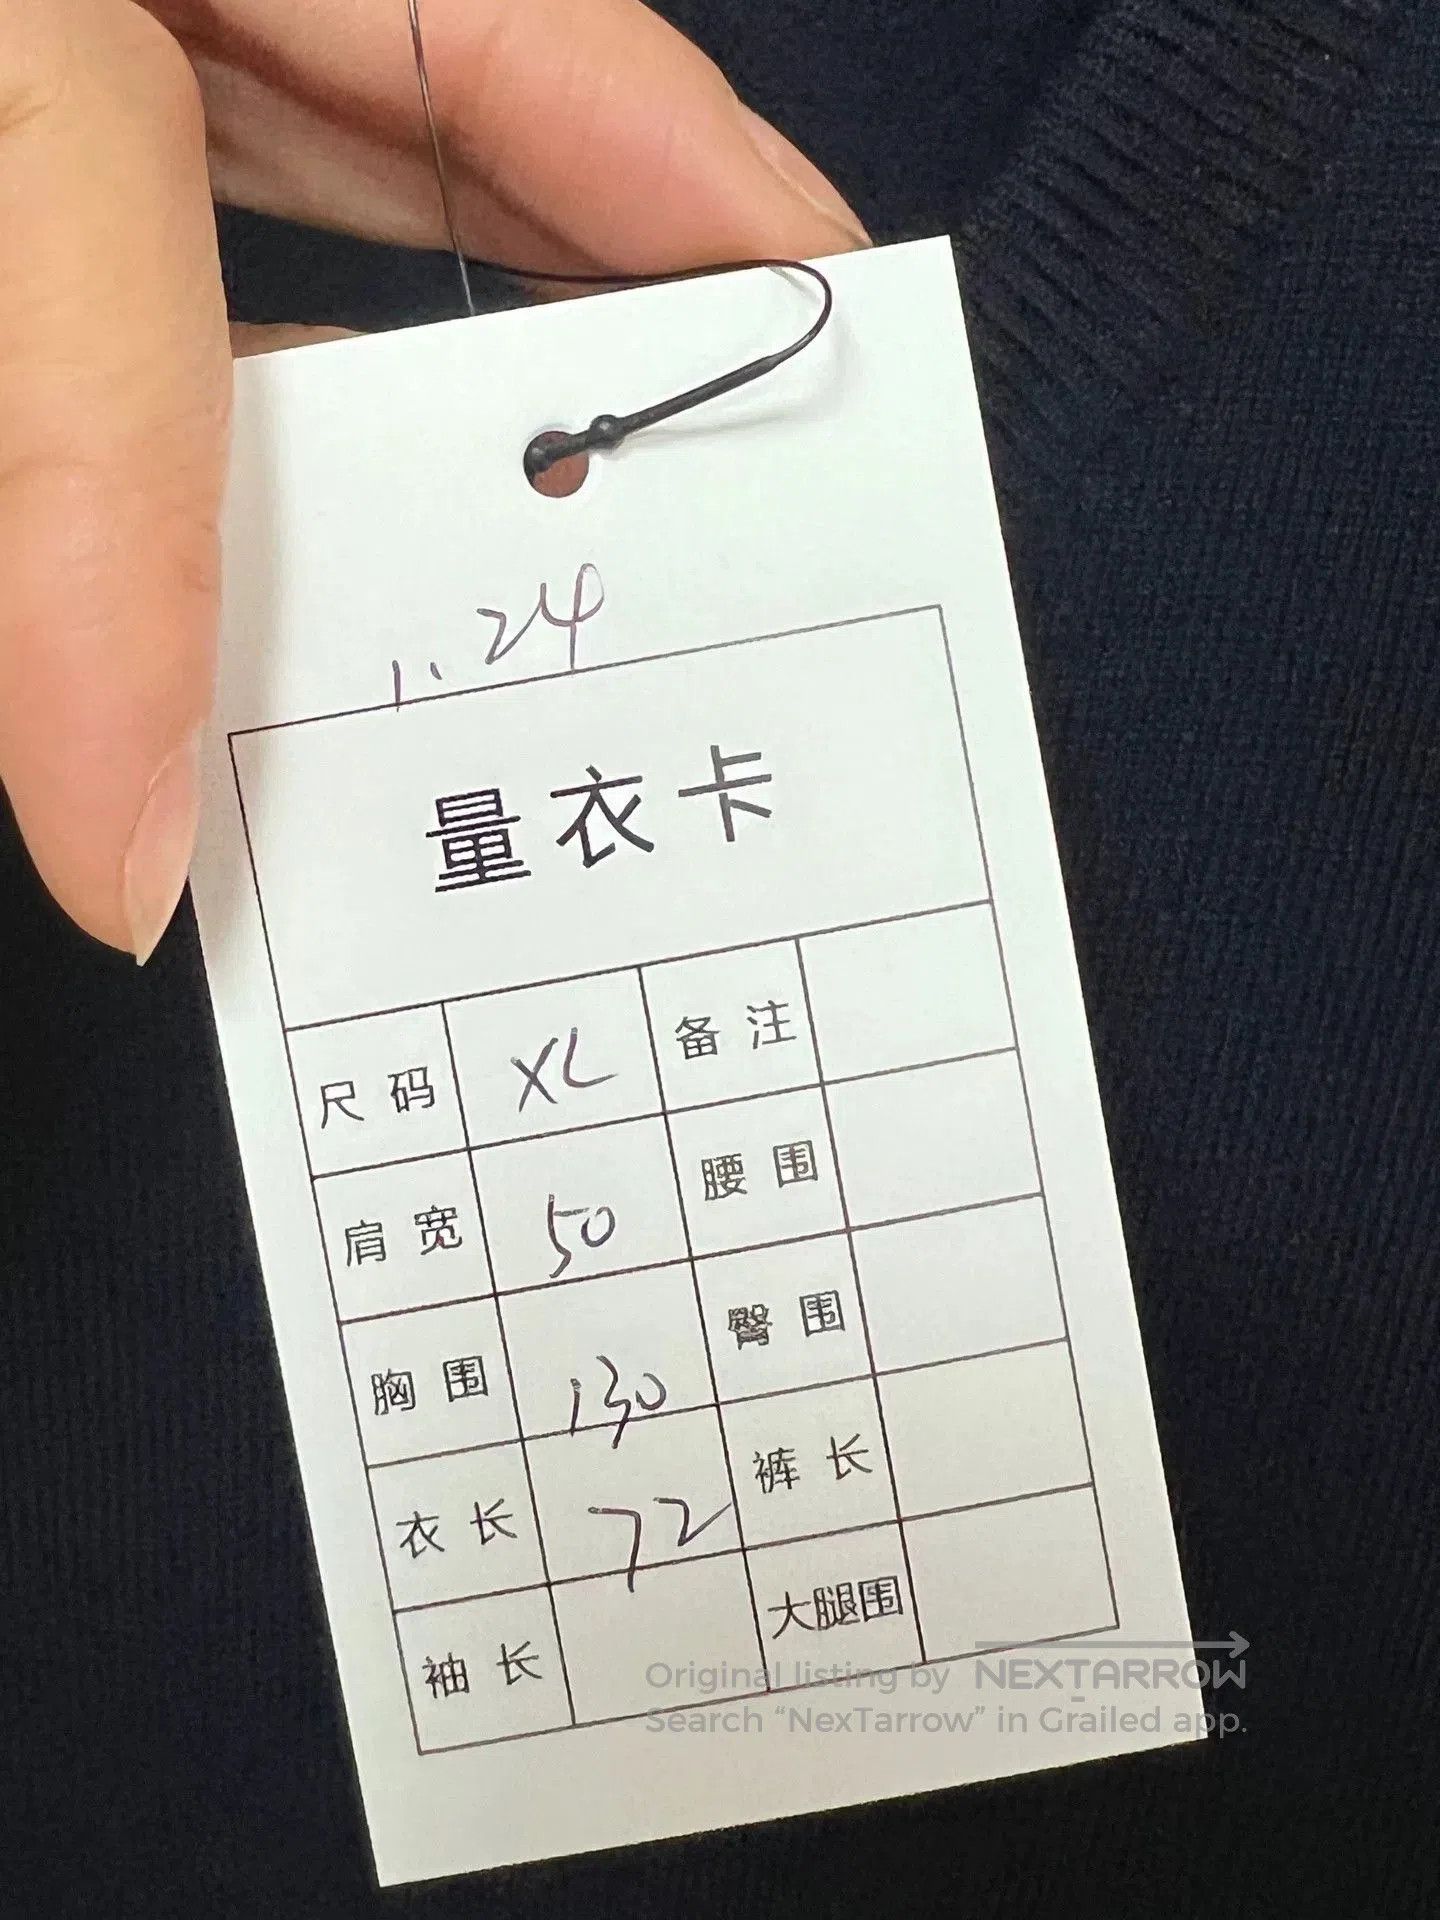 1.24
量衣卡
尺码 XL 备注
肩宽 50 腰围
胸围 130 臀围
衣长 72 裤长
袖长 大腿围
Original listing by NEXTARROW
Search “NexTarrow” in Grailed app.